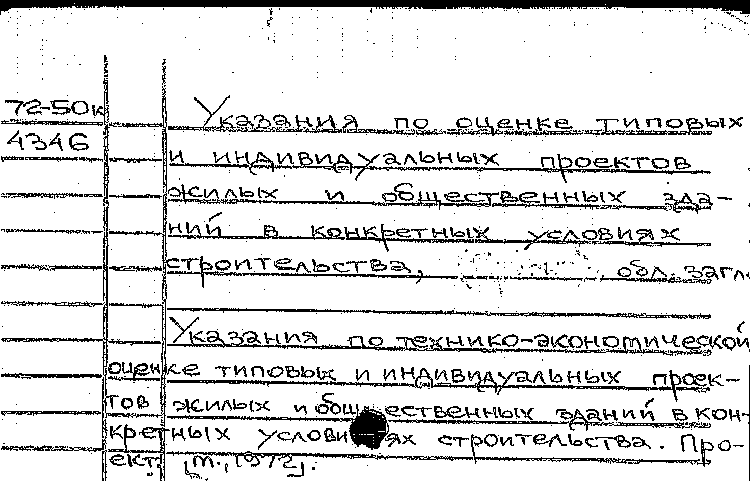 72-50к Указания по оценке типовых
4346 и индивидуальных проектов
жилых и общественных зда-
ний в конкретных условиях
строительства, обл. загл.
Указания по технико-экономической
оценке типовых и индивидуальных проек-
тов жилых и общественных зданий в кон-
кретных условиях строительства. Про-
ект. [М., 1972].